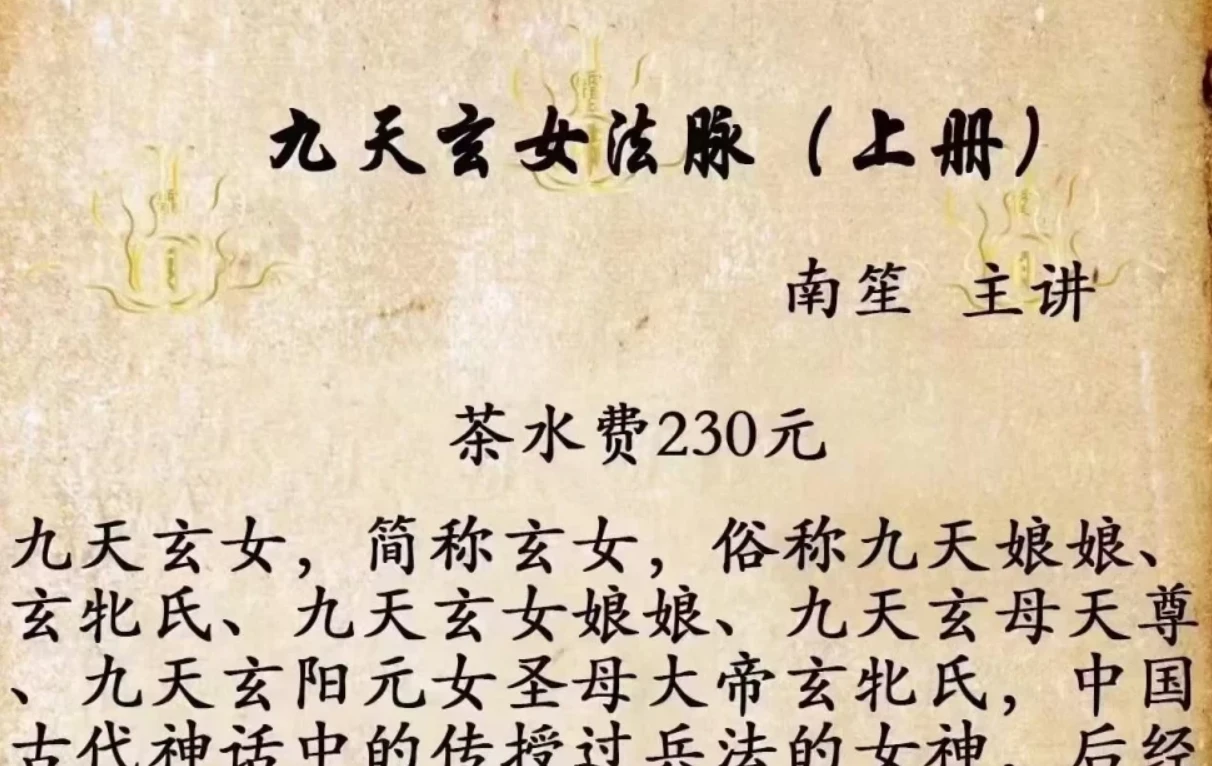 九天玄女法脉（上册）
南笙 主讲
茶水费230元
九天玄女，简称玄女，俗称九天娘娘、
玄牝氏、九天玄女娘娘、九天玄母天尊
、九天玄阳元女圣母大帝玄牝氏，中国
古代神话中的传授过兵法的女神，后经